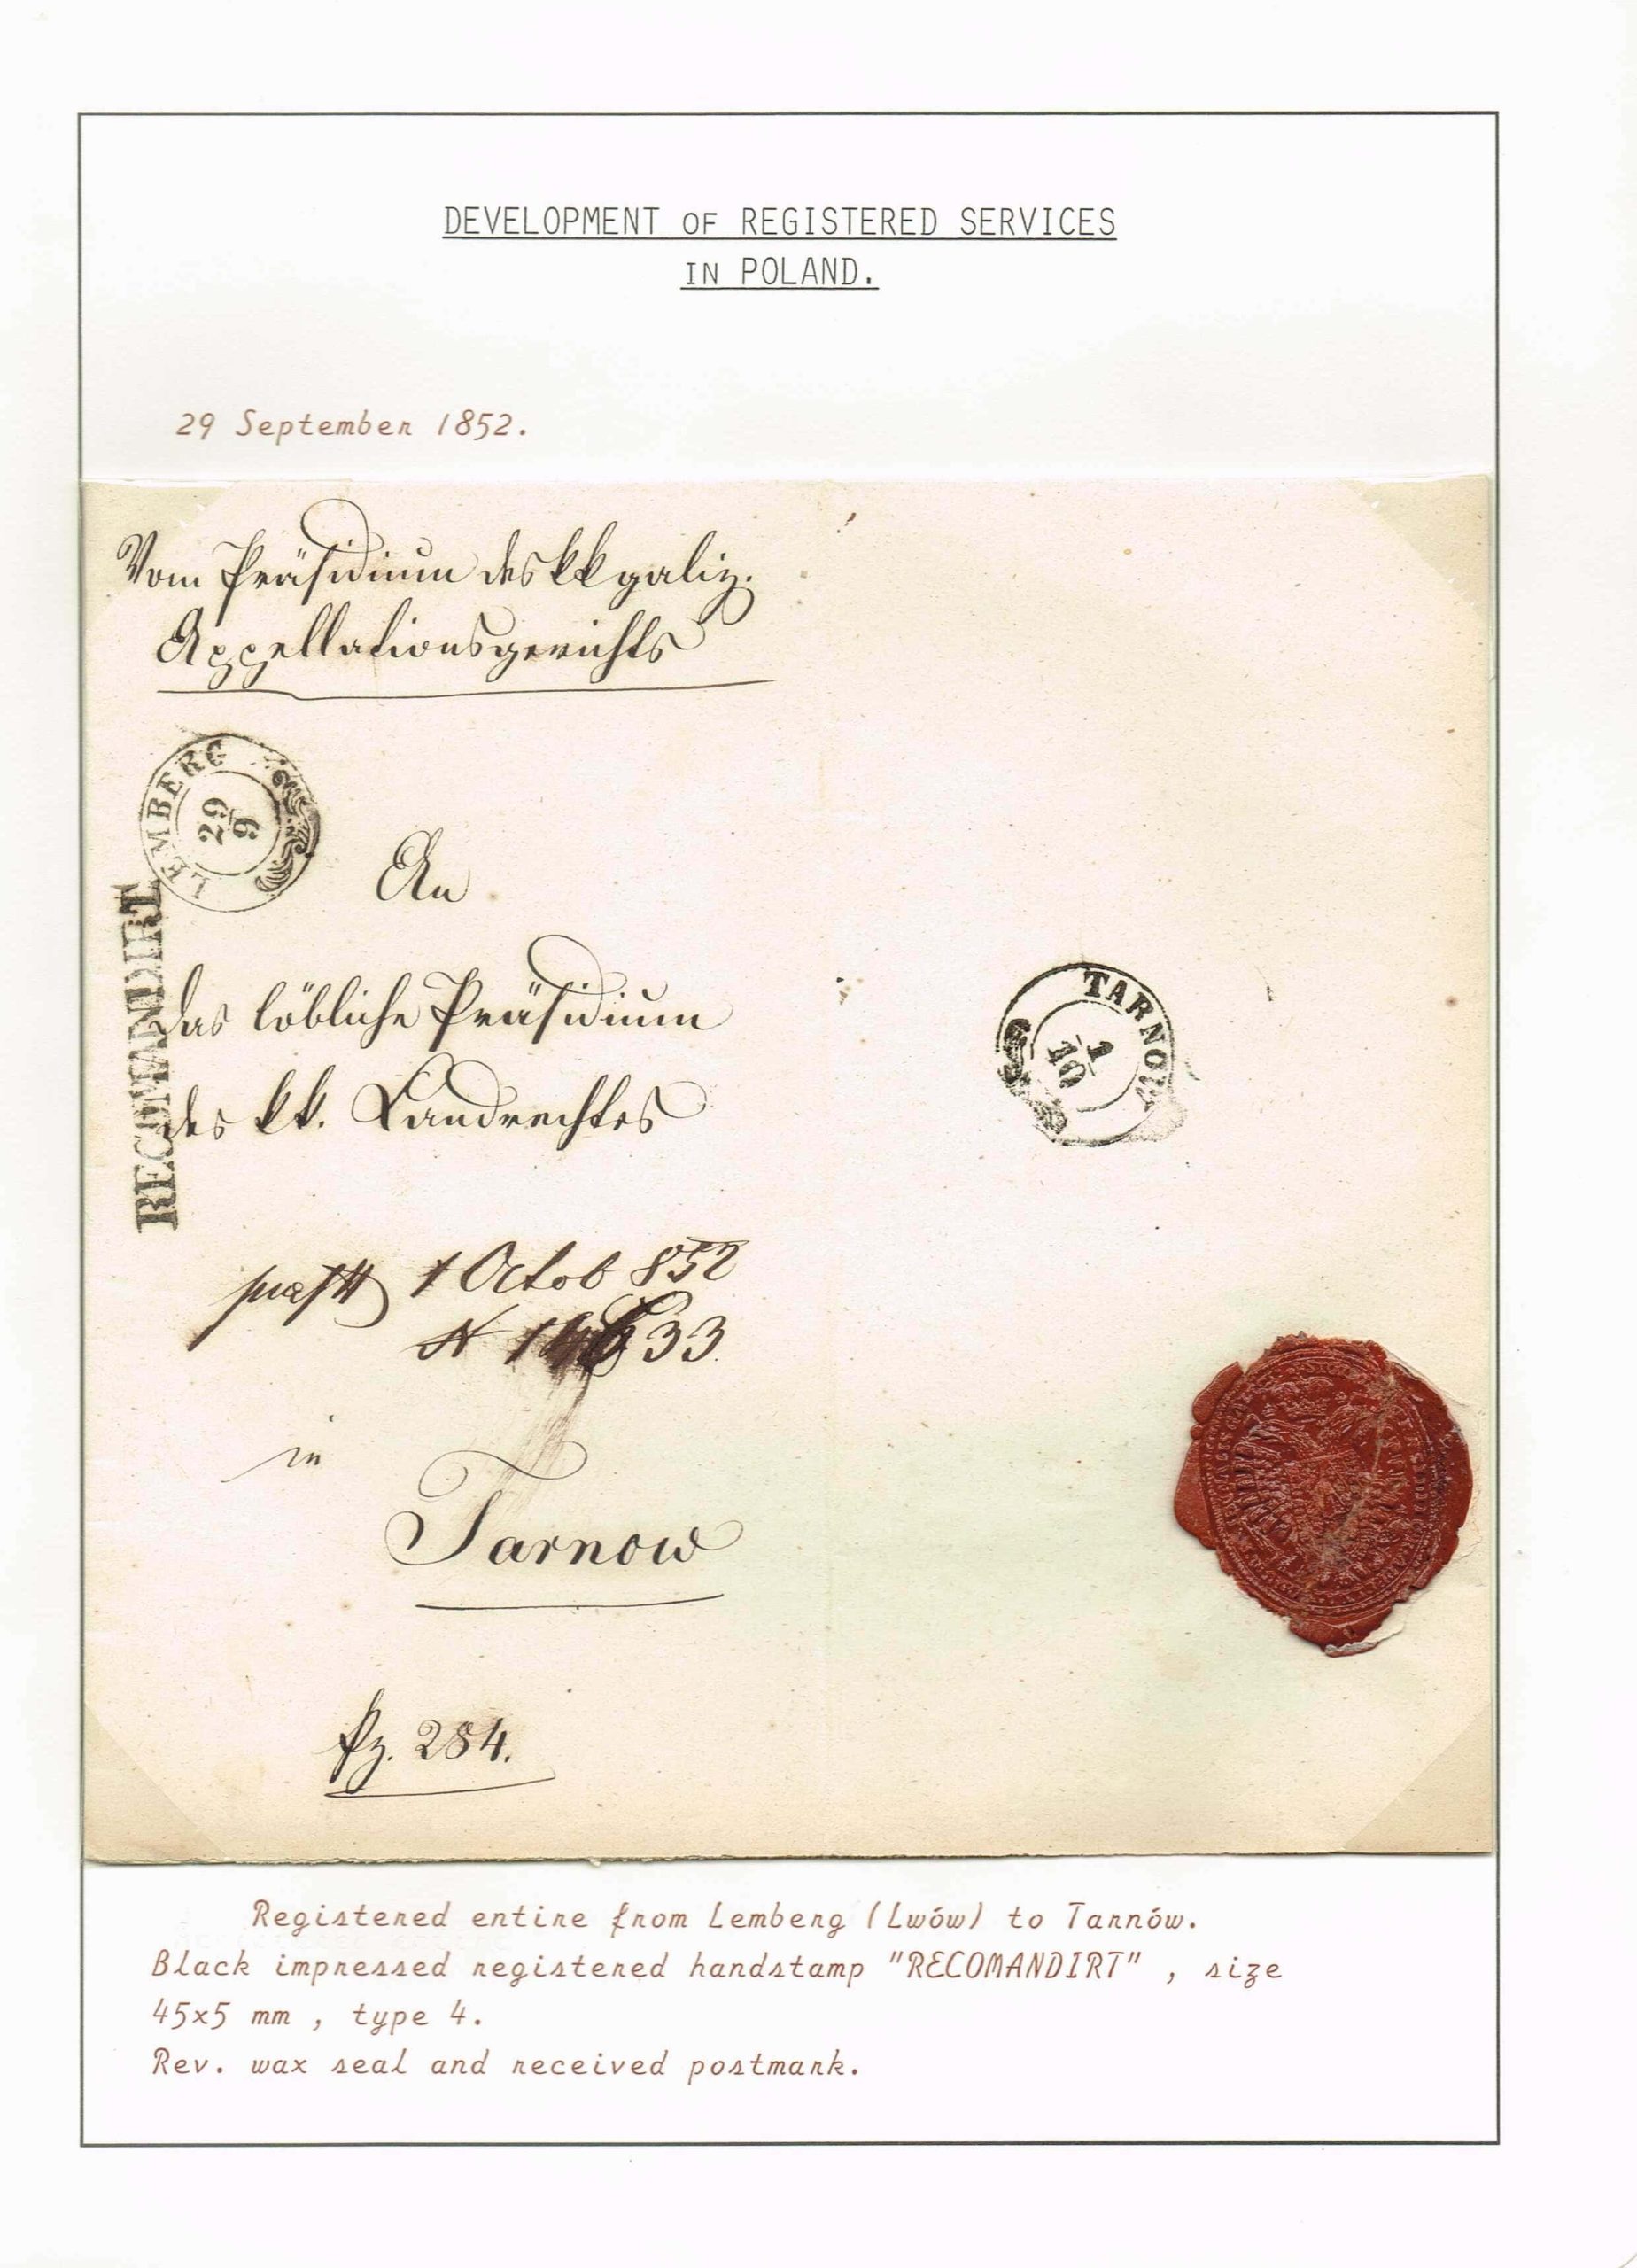 DEVELOPMENT OF REGISTERED SERVICES
IN POLAND.
29 September 1852.
Vom Präsidium des kk galiz.
Appellationsgerichts
LEMBERG
29
9
RECOMANDIRT
An
das löbliche Präsidium
des kk. Landrechtes
TARNOW
1
10
1 Octob 852
N
in
Tarnow
Pz. 284.
Registered entire from Lemberg (Lwów) to Tarnów.
Black impressed registered handstamp "RECOMANDIRT" , size
45x5 mm , type 4.
Rev. wax seal and received postmark.